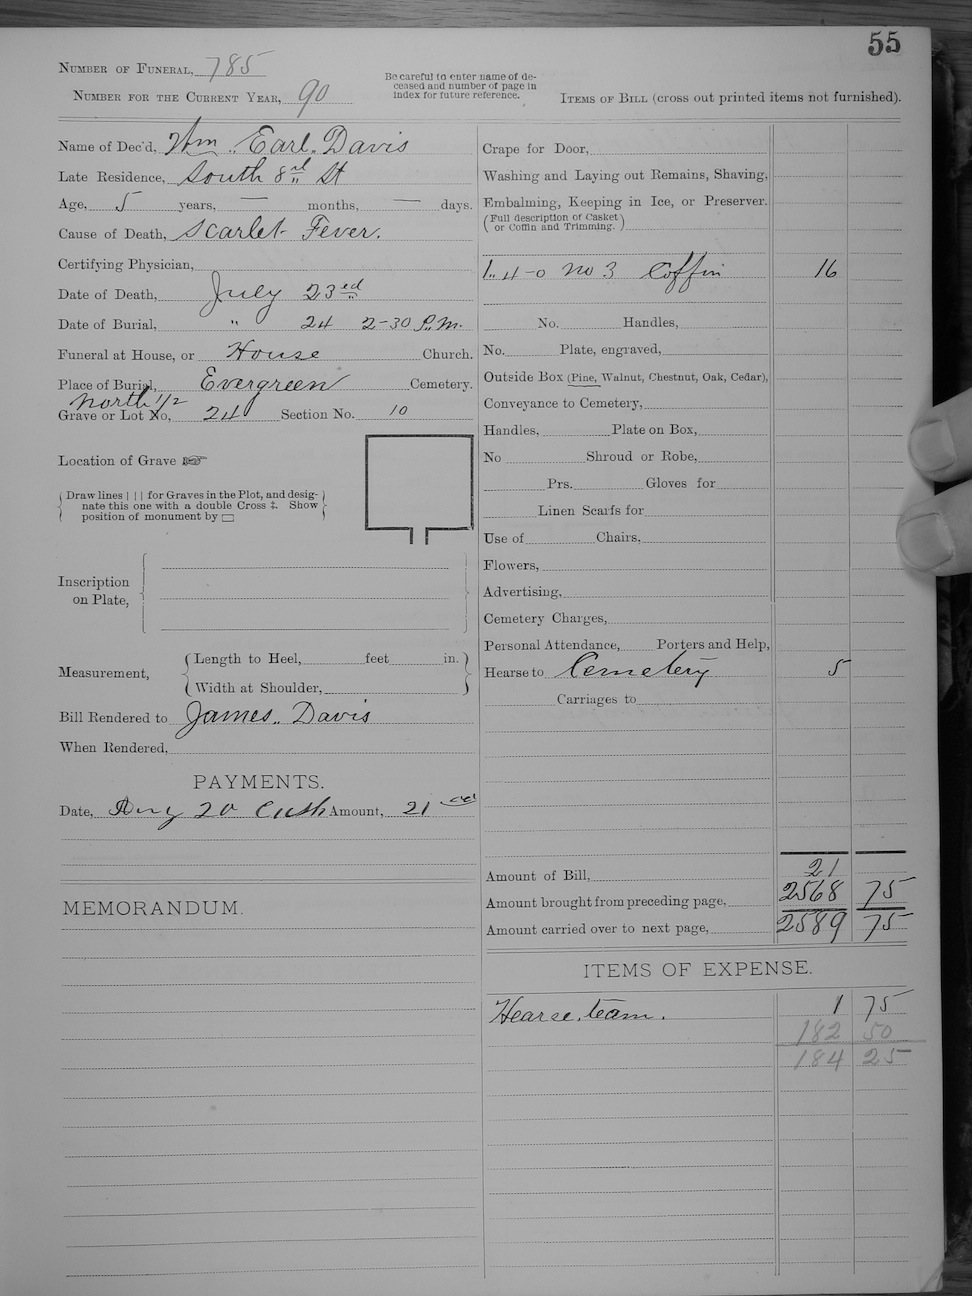 55
Number of Funeral, 785
Number for the Current Year, 90
Be careful to enter name of de-
ceased and number of page in
index for future reference.
Items of Bill (cross out printed items not furnished).
Name of Dec'd, Wm. Earl. Davis
Late Residence, South 8rd St
Age, 5 years, — months, — days.
Cause of Death, Scarlet Fever.
Certifying Physician,
Date of Death, July 23rd
Date of Burial, " 24 2-30 P.M.
Funeral at House, or House Church.
Place of Burial, Evergreen Cemetery.
North 1/2
Grave or Lot No, 24 Section No. 10
Location of Grave ☞
Draw lines | | | for Graves in the Plot, and desig-
nate this one with a double Cross ‡. Show
position of monument by ▭
Inscription
on Plate,
Measurement,
Length to Heel, feet in.
Width at Shoulder,
Bill Rendered to James.. Davis
When Rendered,
PAYMENTS.
Date, Aug 20 Cash Amount, 21
MEMORANDUM.
Crape for Door,
Washing and Laying out Remains, Shaving,
Embalming, Keeping in Ice, or Preserver.
(Full description of Casket
or Coffin and Trimming.)
1.. 4-0 no 3 Coffin 16
No. Handles,
No. Plate, engraved,
Outside Box (Pine, Walnut, Chestnut, Oak, Cedar),
Conveyance to Cemetery,
Handles, Plate on Box,
No Shroud or Robe,
Prs. Gloves for
Linen Scarfs for
Use of Chairs,
Flowers,
Advertising,
Cemetery Charges,
Personal Attendance, Porters and Help,
Hearse to Cemetery 5
Carriages to
Amount of Bill, 21
Amount brought from preceding page, 2568 75
Amount carried over to next page, 2589 75
ITEMS OF EXPENSE.
Hearse. team. 1 75
182 50
184 25